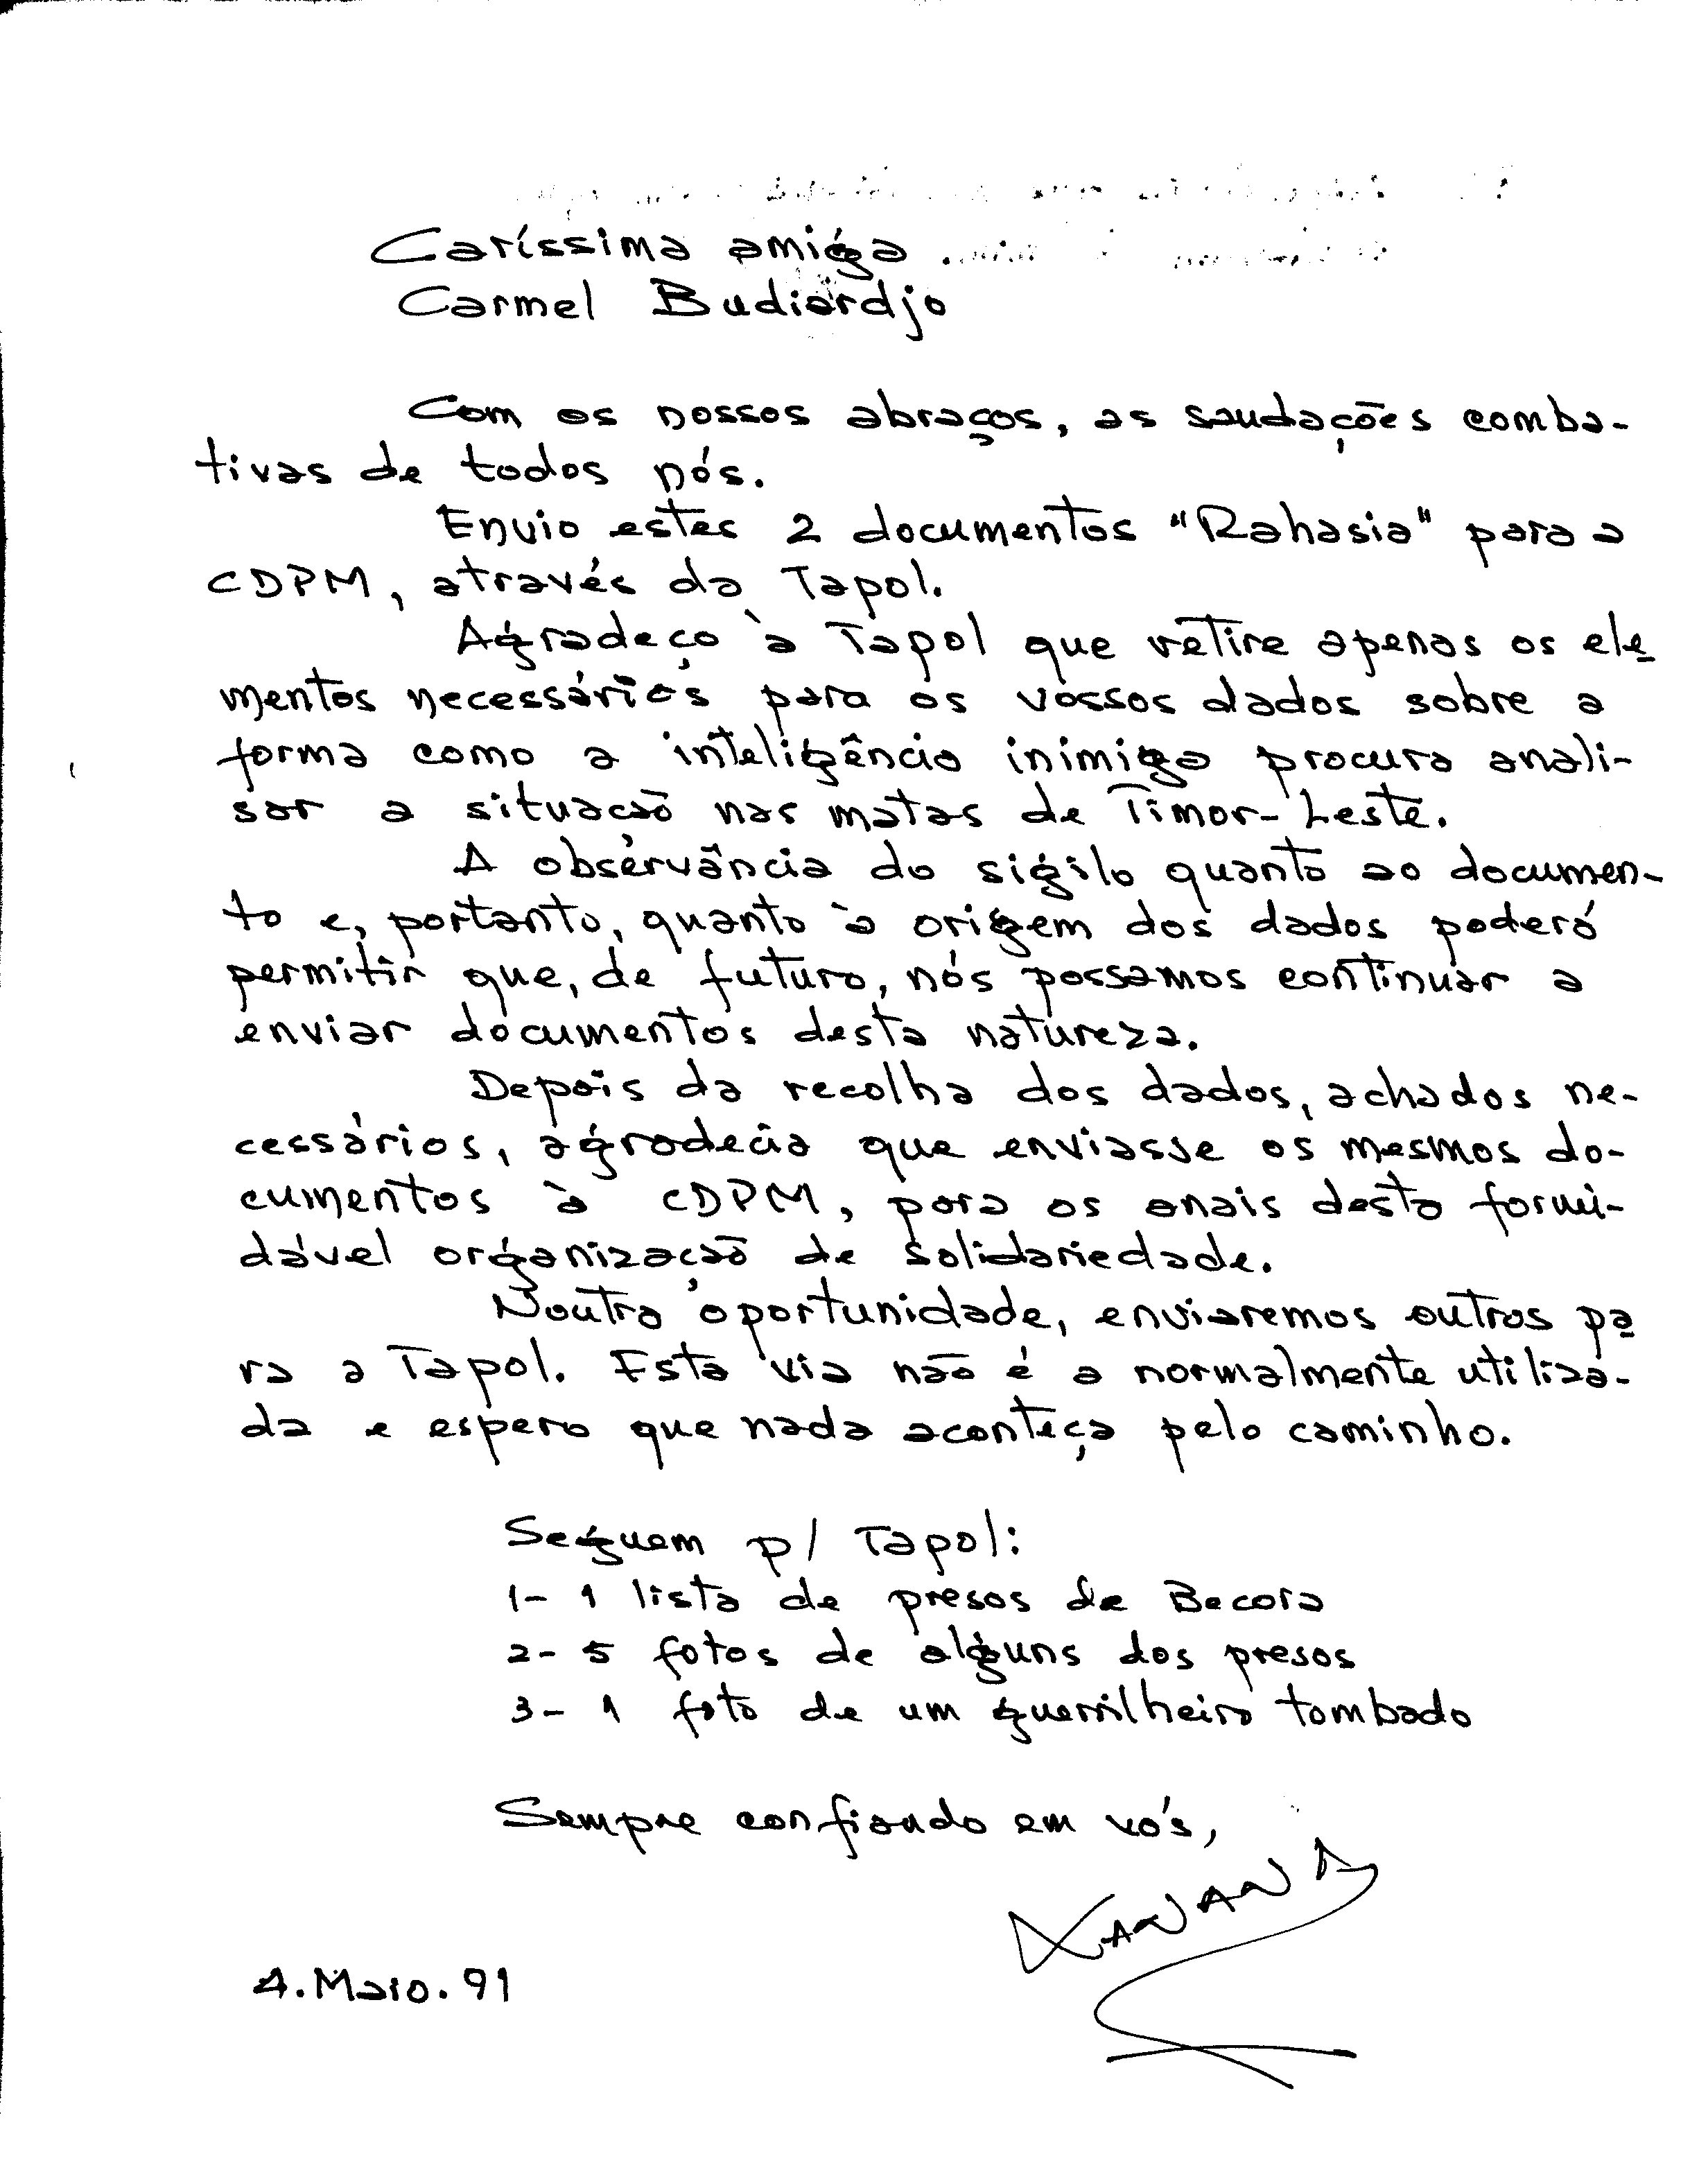 Caríssima amiga
Carmel Budiardjo
Com os nossos abraços, as saudações comba-
tivas de todos nós.
Envio estes 2 documentos "Rahasia" para a
CDPM, através da Tapol.
Agradeço à Tapol que retire apenas os ele
mentos necessários para os vossos dados sobre a
forma como a inteligência inimiga procura anali-
sar a situação nas matas de Timor-Leste.
A observância do sigilo quanto ao documen-
to e, portanto, quanto à origem dos dados poderá
permitir que, de futuro, nós possamos continuar a
enviar documentos desta natureza.
Depois da recolha dos dados, achados ne-
cessários, agradecia que enviasse os mesmos do-
cumentos à CDPM, para os anais desta formi-
dável organização de solidariedade.
Noutra oportunidade, enviaremos outros pa
ra a Tapol. Esta via não é a normalmente utiliza-
da e espero que nada aconteça pelo caminho.
Seguem p/ Tapol:
1- 1 lista de presos de Becora
2- 5 fotos de alguns dos presos
3- 1 foto de um guerrilheiro tombado
Sempre confiando em vós,
XANANA
4.Maio.91